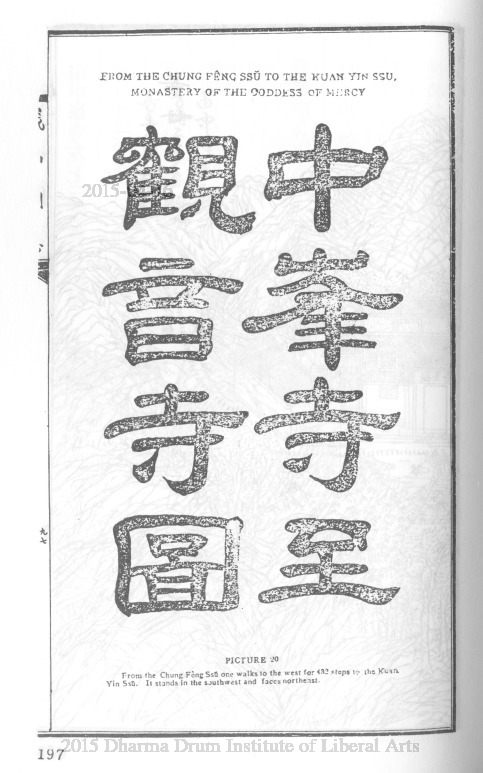 FROM THE CHUNG FÊNG SSŬ TO THE KUAN YIN SSU,
MONASTERY OF THE GODDESS OF MERCY
中峯寺至
觀音寺圖
九七
PICTURE 20
From the Chung Fêng Ssŭ one walks to the west for 432 steps to the Kuan
Yin Ssŭ. It stands in the southwest and faces northeast.
197
2015 Dharma Drum Institute of Liberal Arts